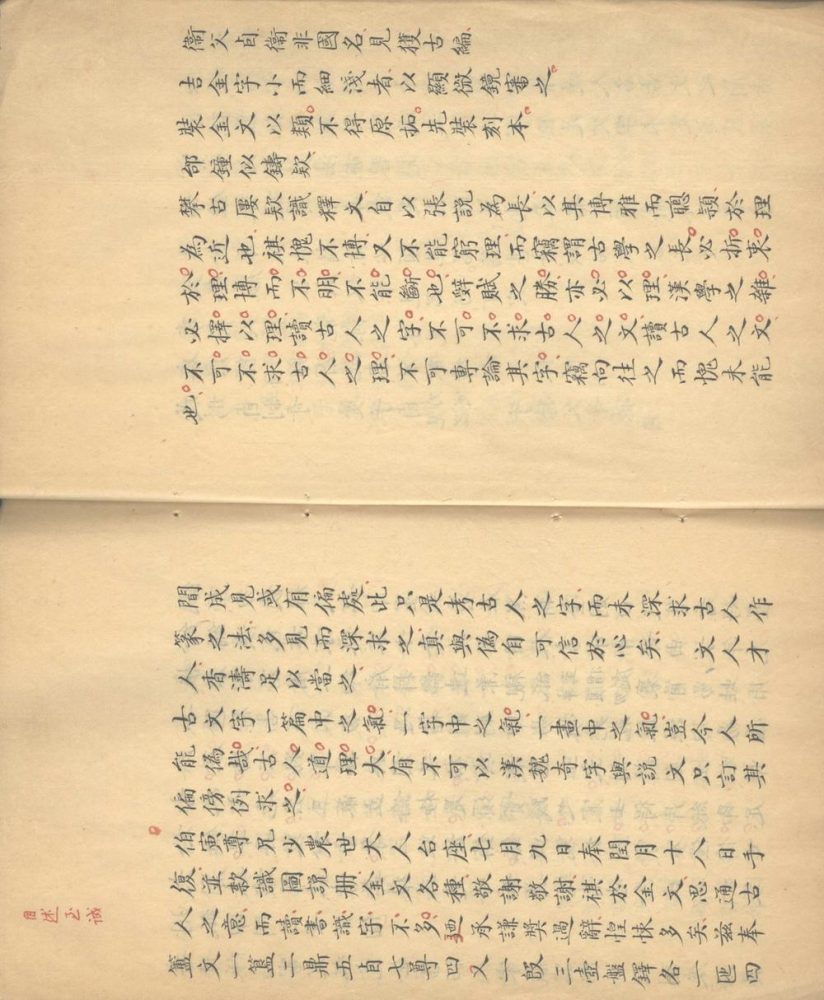 衞父卣衞非國名見獲古編
吉金字小而細淺者以顯微鏡審之
裝金文以類不得原拓先裝刻本
邰鐘似鑄欵
攀古廔欵識釋文自以張說為長以其博雅而聰穎於理
為近也祺愧不博又不能窮理而竊謂古學之長必折衷
於理博而不明不能斷也辭賦之勝亦必以理漢學之雜
必擇以理讀古人之字不可不求古人之文讀古人之文
不可不求古人之理不可專論其字竊向往之而愧未能
也
間成見或有偏處此只是考古人之字而未深求古人作
篆之法多見而深求之真與偽自可信於心矣 文人才
人香濤足以當之
古文字一篇中之氣一字中之氣一畫中之氣豈今人所
能偽哉古人道理大有不可以漢魏奇字與說文只訂其
偏傍例求之
伯寅尊兄少農世大人台座七月九日奉閏月十八日手
復並款識圖說册金文各種敬謝敬謝祺於金文思通古
人之意而讀書識字不多廼承謙奬過辭惶悚多矣茲奉
簠文一簋二鼎五卣七尊四又一𣪘三壺盤鐸各一匜四